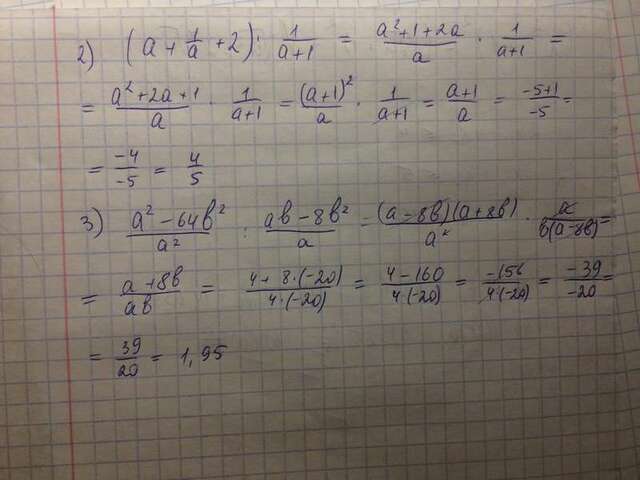 2) (a + 1/a + 2) · 1/(a+1) = (a²+1+2a)/a · 1/(a+1) =
= (a²+2a+1)/a · 1/(a+1) = (a+1)²/a · 1/(a+1) = (a+1)/a = (-5+1)/-5 =
= -4/-5 = 4/5
3) (a² - 64b²)/a² : (ab - 8b²)/a = (a - 8b)(a + 8b)/a² · a/(b(a - 8b)) =
= (a + 8b)/(ab) = (4 + 8·(-20))/(4·(-20)) = (4 - 160)/(4·(-20)) = -156/(4·(-20)) = -39/-20 =
= 39/20 = 1,95